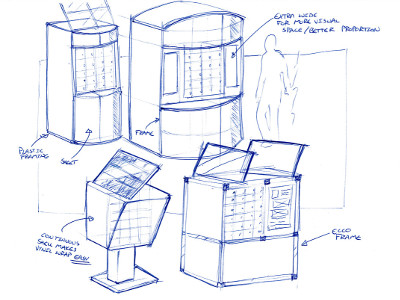 EXTRA WIDE
FOR MORE VISUAL
SPACE/BETTER PROPORTION
PLASTIC
FRAMING
FRAME
CONTINUOUS
MAKES
VINYL WRAP EASY
ECCO
FRAME